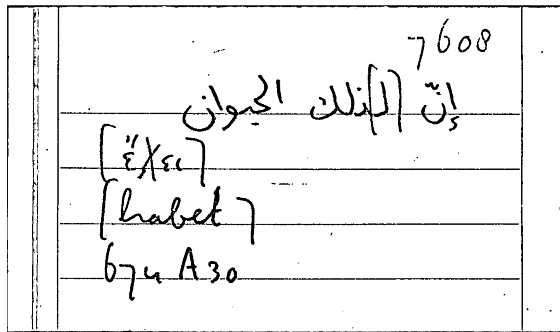 7608
إنّ [لـ]ذلك الحيوان
[habet]
674 A 30